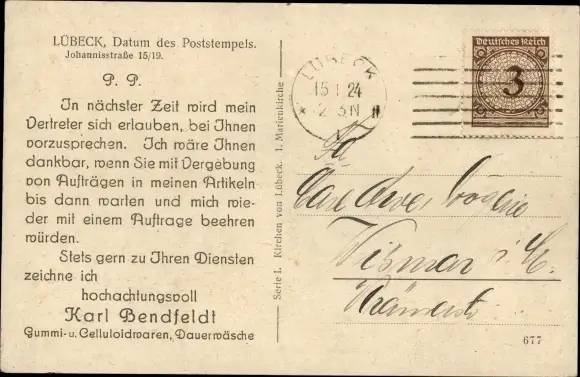 LÜBECK, Datum des Poststempels.
Johannisstraße 15/19.
P. P.
In nächster Zeit wird mein
Vertreter sich erlauben, bei Ihnen
vorzusprechen. Ich wäre Ihnen
dankbar, wenn Sie mit Vergebung
von Aufträgen in meinen Artikeln
bis dann warten und mich wie-
der mit einem Auftrage beehren
würden.
Stets gern zu Ihren Diensten
zeichne ich
hochachtungsvoll
Karl Bendfeldt
Gummi- u. Celluloidwaren, Dauerwäsche
Serie I. Kirchen von Lübeck. 1. Marienkirche
LÜBECK
15 1 24
2-3N
Deutsches Reich
3
Fa
Wismar i. M.
677